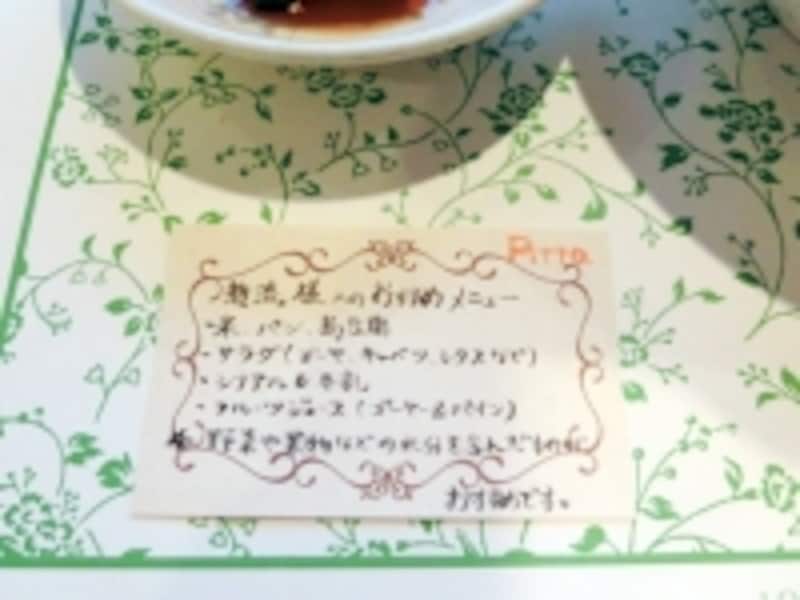 Pitta
様へのおすすめメニュー
・米、パン、島豆腐
・サラダ(ゴーヤ、キャベツ、レタスなど)
・シリアル&牛乳
・フルーツジュース(ゴーヤー&パイン)
野菜や果物などの水分を含んだものが
おすすめです。